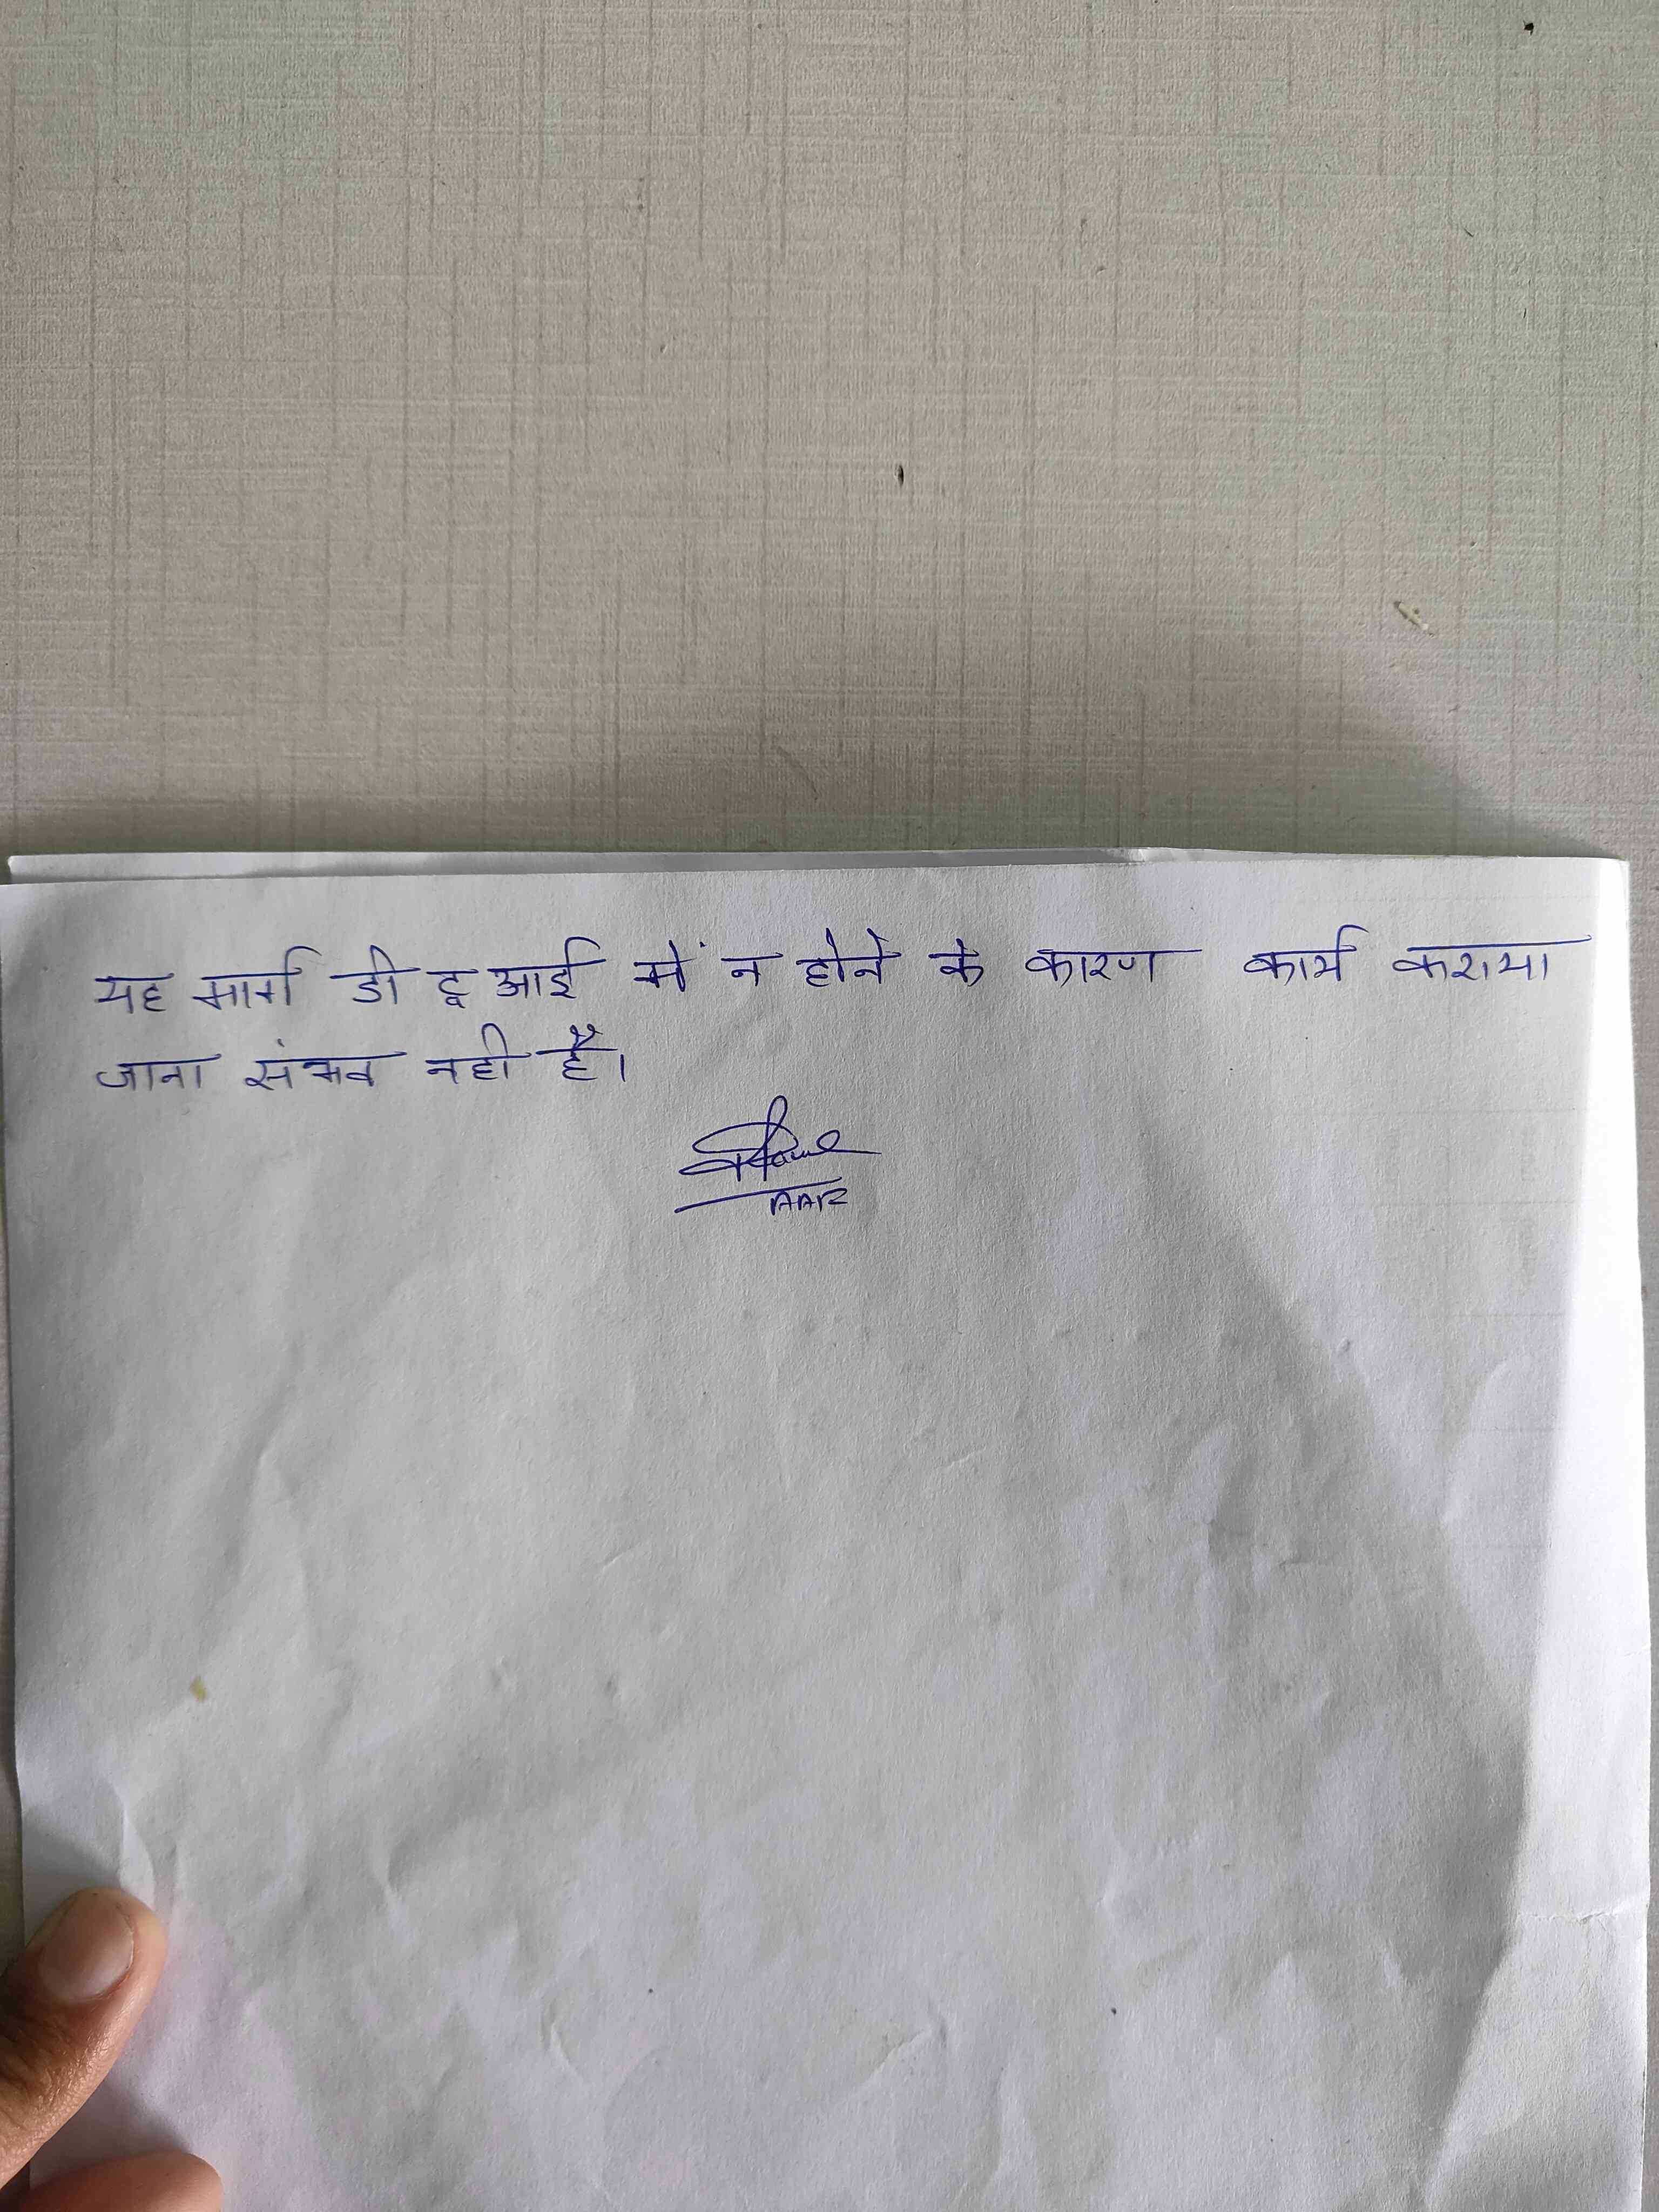 यह मार्ग डी टू आई में न होने के कारण कार्य कराया
जाना संभव नही है।